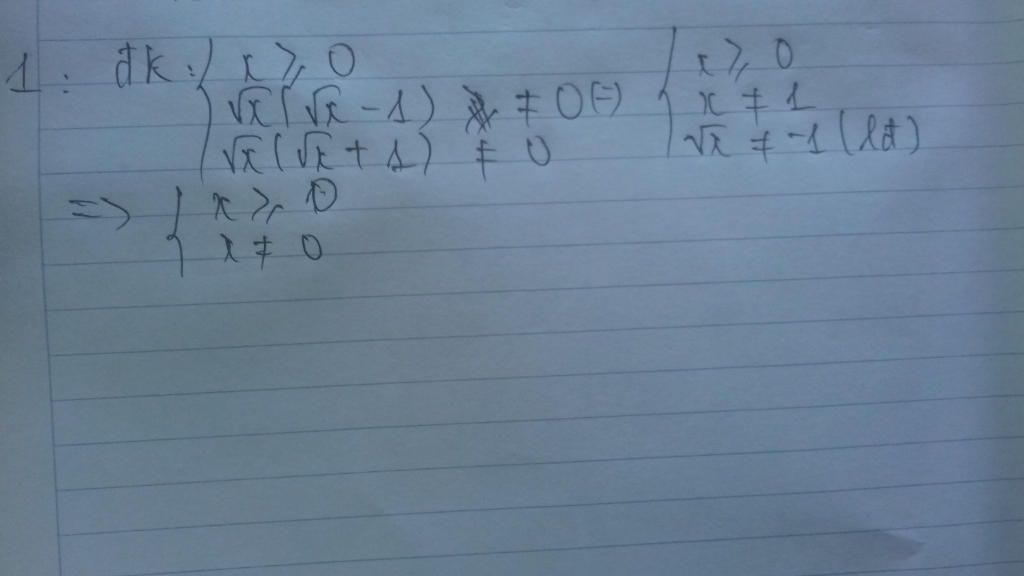 1 : đk : { x ⩾ 0 { x ⩾ 0
√x(√x - 1) ≠ 0 (=) x ≠ 1
√x(√x + 1) ≠ 0 √x ≠ -1 (lđ)
=> { x ⩾ 0
x ≠ 0